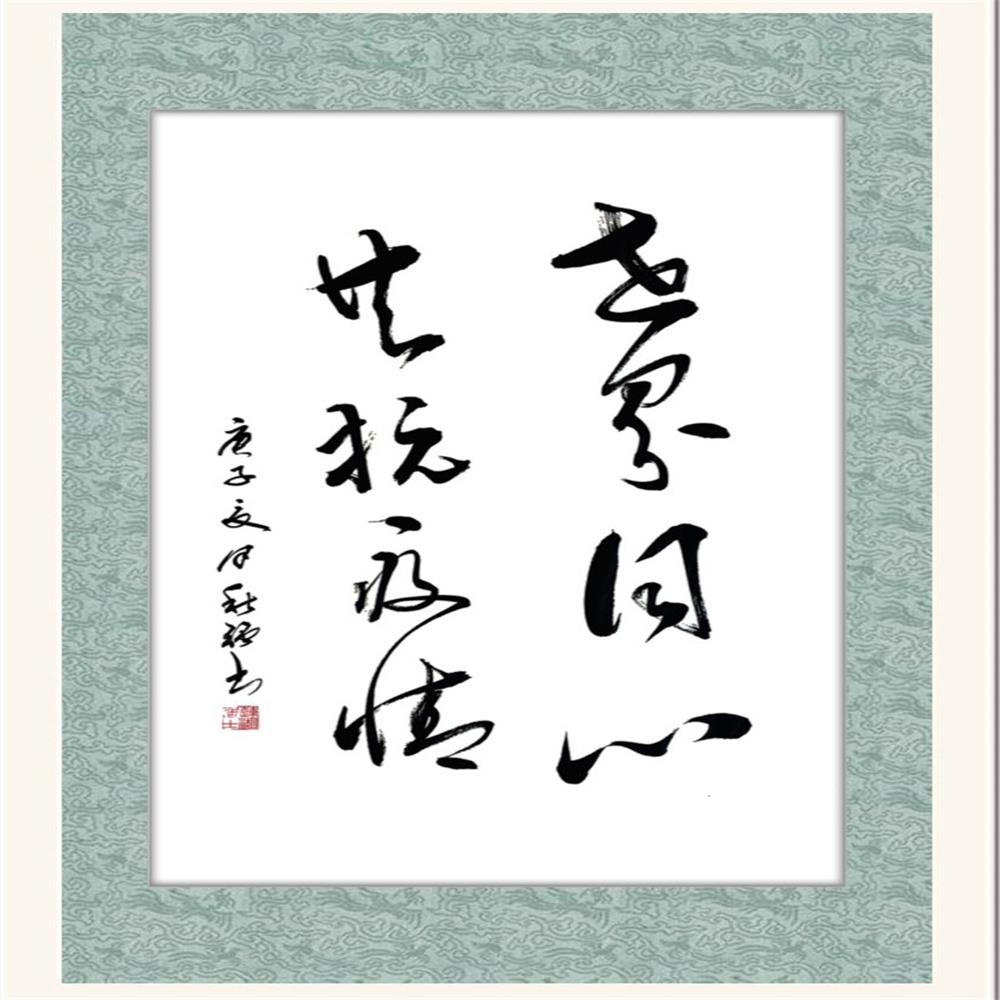 世界同心
共抗疫情
庚子夏月秋
书